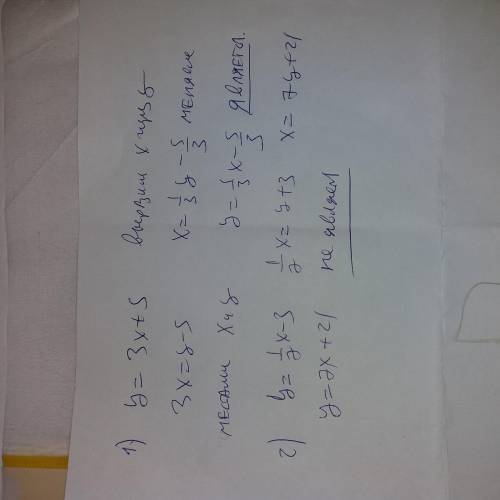 1) y = 3x+5 выразим x через y
3x = y-5 x = 1/3 y - 5/3 меняем
местами x и y y = 1/3 x - 5/3 являетс.
2) y = 1/7 x - 3 1/7 x = y+3 x = 7y+21
y = 7x+21 не являет